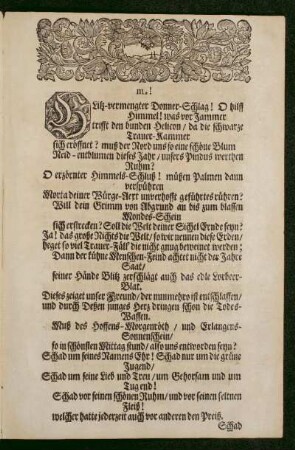 m.!
Blitz-vermengter Donner-Schlag! O hilff
Himmel! was vor Jammer
trifft den bunden Helicon / da die schwartze
Trauer-Kammer
sich eröffnet? muß der Nord uns so eine schöne Blum
Neid-entblumen dieses Jahr / unsers Pindus werthen
Ruhm?
O erzörnter Himmels-Schluß! müßen Palmen dann
verblühren
Morta deiner Würge-Axt unverhoffte geführtes rühren?
Will dein Grimm von Abgrund an bis zum blassen
Mondes-Schein
sich erstrecken? Soll die Welt deiner Sichel Ernde seyn?
Ja! das große Nichts die Welt / so wir nennen diese Erden /
heget so viel Trauer-Fäll' die nicht gnug beweinet werden;
Dann der kühne Menschen-Feind achtet nicht des Jahre
Saat /
seiner Hände Blitz zerschlägt auch das edle Lorbeer-
Blat.
Dieses zeiget unser Freund / der nunmehro ist entschlaffen /
und durch Dessen junges Herz drungen schon die Todes-
Waffen.
Muß des Hoffens-Morgenröth / und Erlangens-
Sonnenschein /
so in schönsten Mittag stund / also uns entworden seyn?
Schad um seines Namens Ehr! Schad nur um die grüne
Jugend /
Schad um seine Lieb und Treu / um Gehorsam und um
Tugend!
Schad vor seinen schönen Ruhm / und vor seinen seltnen
Fleiß!
welcher hatte jederzeit auch vor anderen den Preiß.
Schad